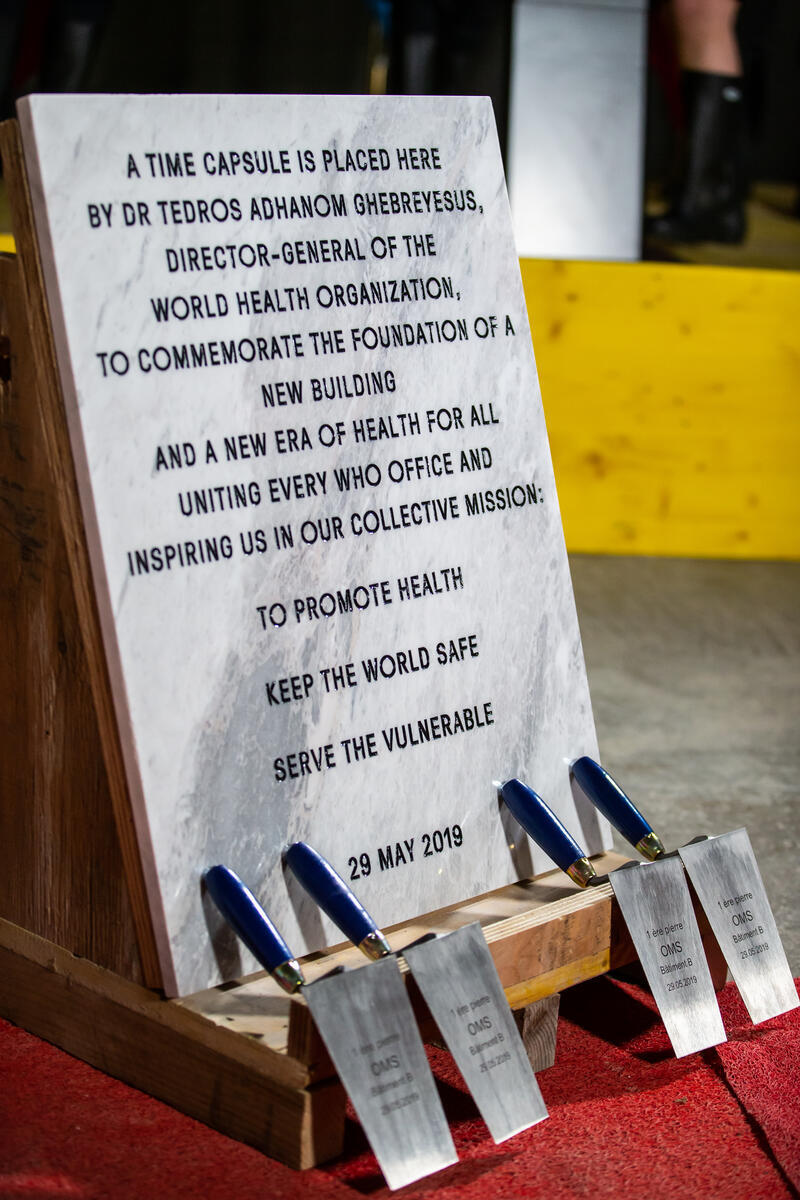 A TIME CAPSULE IS PLACED HERE
BY DR TEDROS ADHANOM GHEBREYESUS,
DIRECTOR-GENERAL OF THE
WORLD HEALTH ORGANIZATION,
TO COMMEMORATE THE FOUNDATION OF A
NEW BUILDING
AND A NEW ERA OF HEALTH FOR ALL
UNITING EVERY WHO OFFICE AND
INSPIRING US IN OUR COLLECTIVE MISSION:
TO PROMOTE HEALTH
KEEP THE WORLD SAFE
SERVE THE VULNERABLE
29 MAY 2019
1 ère pierre
OMS
Bâtiment B
29.05.2019
1 ère pierre
OMS
Bâtiment B
29.05.2019
1 ère pierre
OMS
Bâtiment B
29.05.2019
1 ère pierre
OMS
Bâtiment B
29.05.2019